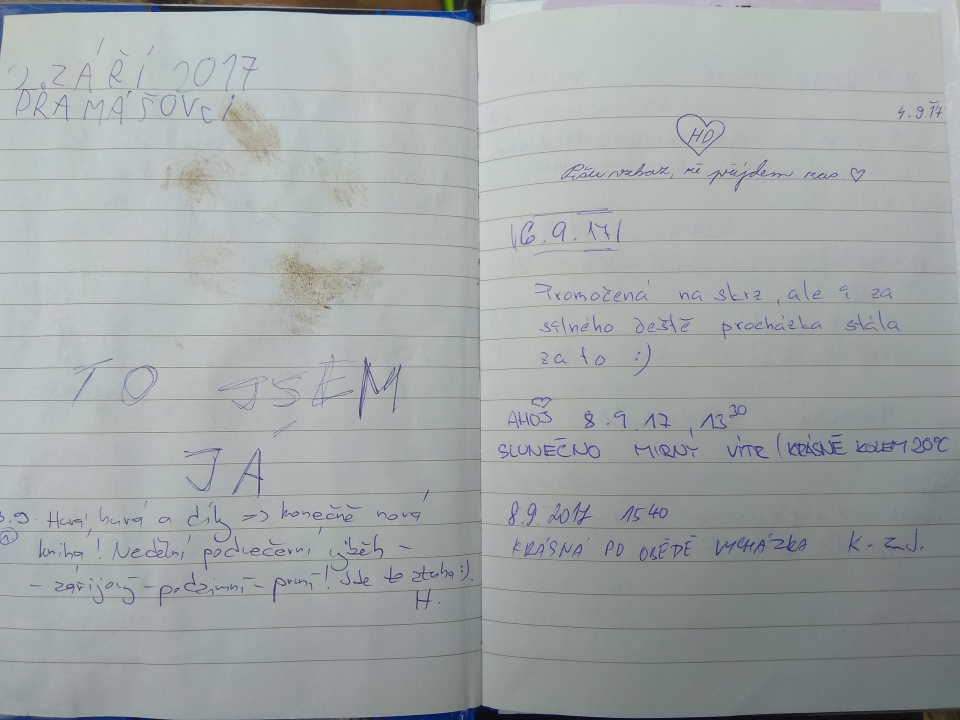 2. ZÁŘÍ 2017
DRAMÁŠOVCI
TO JSEM
JÁ
3.9. Hurá, hurá a díky => konečně nová
kniha! Nedělní podvečerní výběh -
- zářijový - podzimní - první! Jde to ztuha :).
H.
4.9.17
HD
Píšu vzkaz, že přijdem zas ♡
6.9.17
Promočená na skrz, ale i za
silného deště procházka stála
za to :)
AHOJ 8.9.17, 13³⁰
SLUNEČNO MIRNÝ VÍTR (KRÁSNĚ KOLEM 20°C
8.9.2017 1540
KRÁSNÁ PO OBĚDĚ VYCHÁZKA K-Z.J.